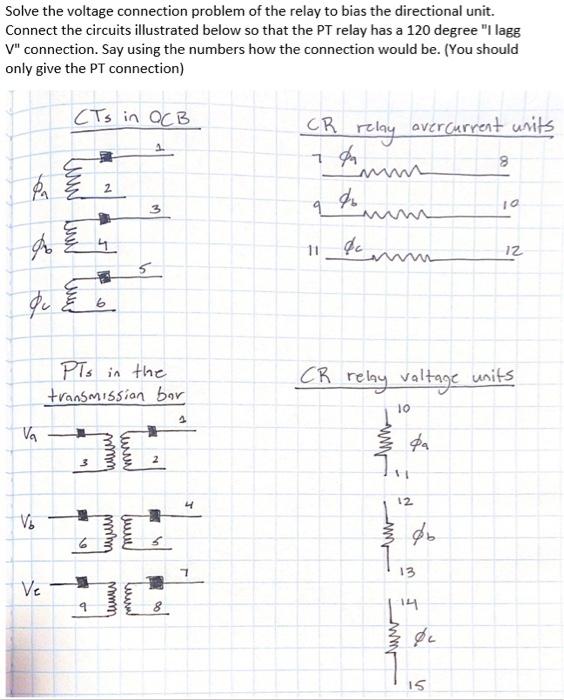 Solve the voltage connection problem of the relay to bias the directional unit.
Connect the circuits illustrated below so that the PT relay has a 120 degree "I lagg
V" connection. Say using the numbers how the connection would be. (You should
only give the PT connection)
CTs in OCB
1
ϕa
2
3
ϕb
4
5
ϕc
6
CR relay overcurrent units
7 ϕa 8
9 ϕb 10
11 ϕc 12
PTs in the
transmission bar
Va
1
3 2
Vb
4
6 5
Vc
7
9 8
CR relay voltage units
10
ϕa
11
12
ϕb
13
14
ϕc
15